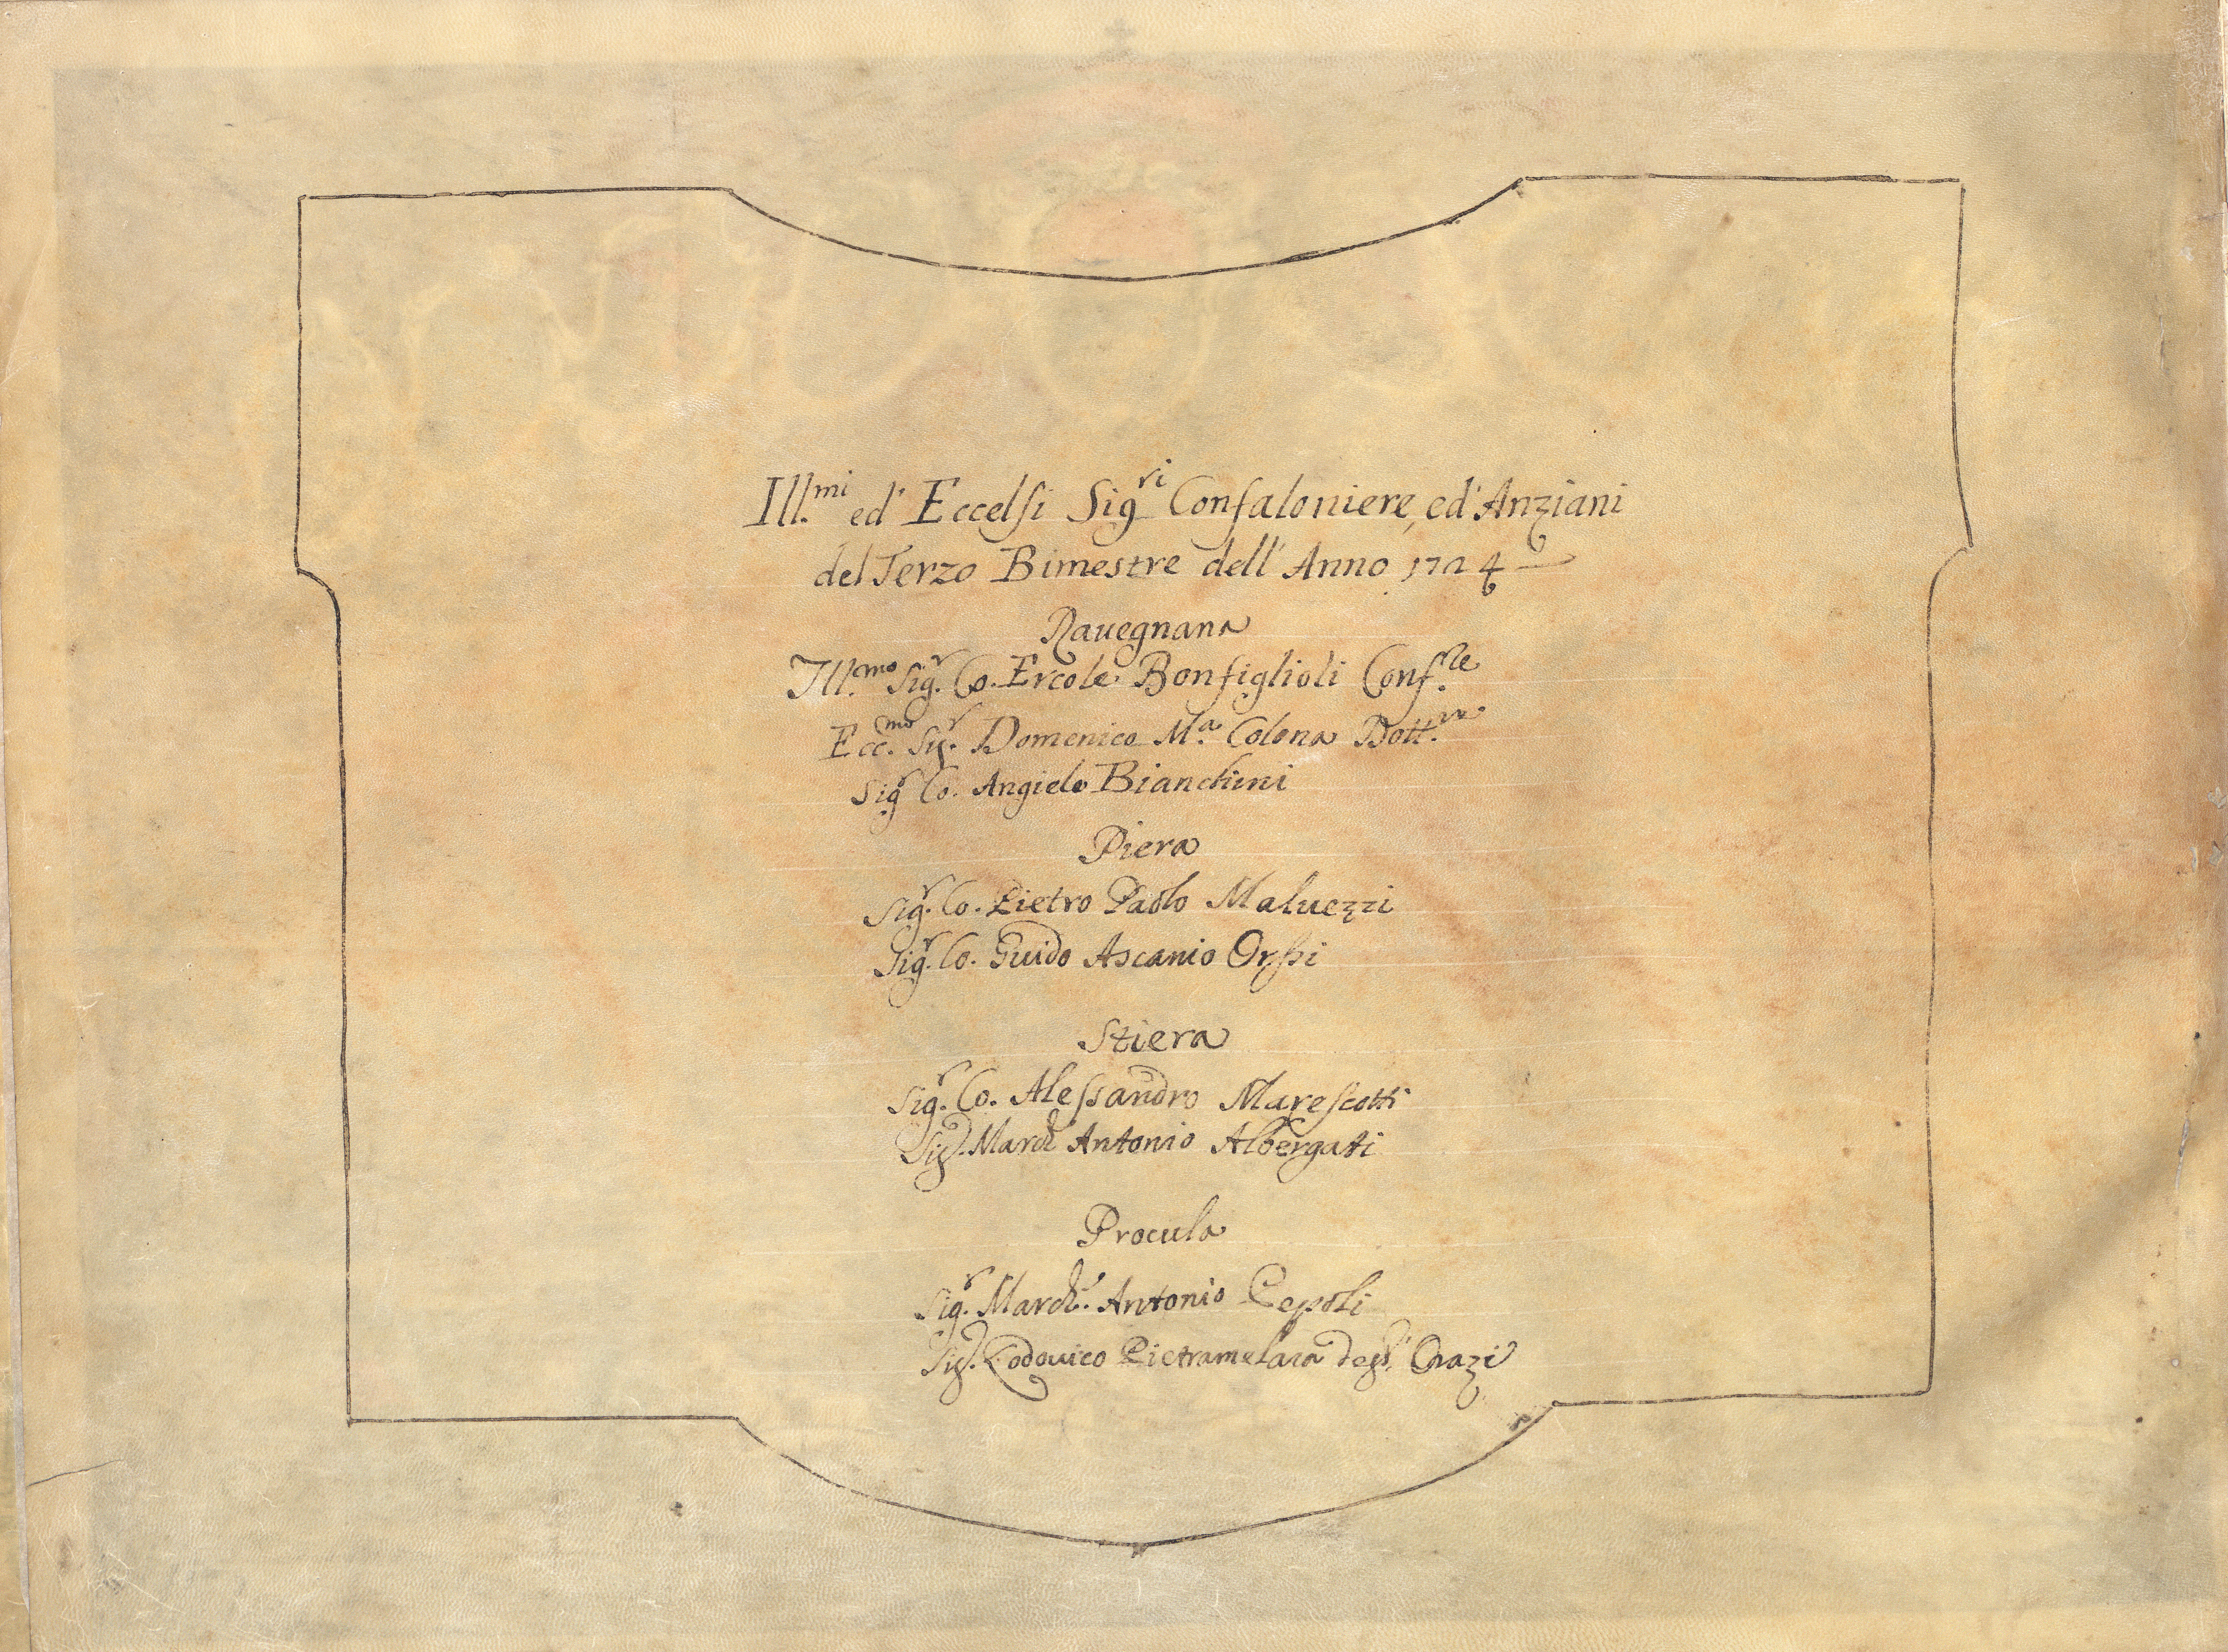 Ill.mi ed' Eccelsi Sig.ri Confaloniere, ed' Anziani
del Terzo Bimestre dell' Anno 1724
Rauegnana
Ill.mo Sig.r Co. Ercole Bonfiglioli Conf.re
Ecc.mo Sig.r Domenico M.a Colona Dott.re
Sig.r Co. Angielo Bianchini
Piera
Sig.r Co. Pietro Paolo Maluezzi
Sig.r Co. Guido Ascanio Orssi
Stiera
Sig.r Co. Alessandro Marescotti
Sig.r March. Antonio Albergati
Procula
Sig.r March.e Antonio Pepoli
Sig.r Lodouico Pietramelara degl'